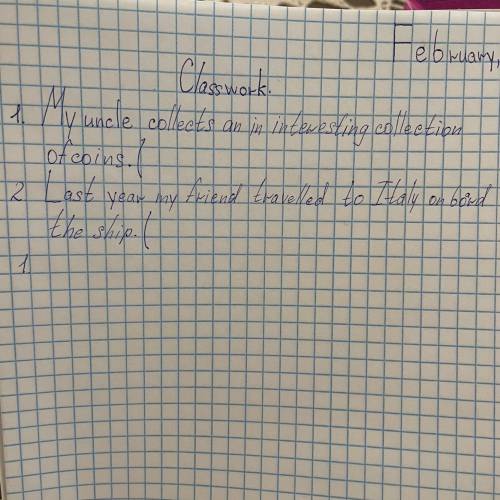 February,
Classwork.
1. My uncle collects an in interesting collection
of coins. (
2 Last year my friend travelled to Italy on bord
the ship. (
1